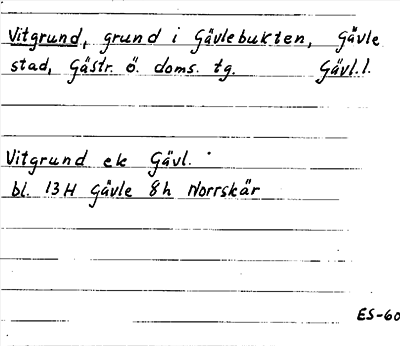 Vitgrund, grund i Gävlebukten, Gävle
stad, Gästr. ö. doms. tg. Gävl. l.
Vitgrund ek Gävl.
bl. 13H Gävle 8h Norrskär
ES-60